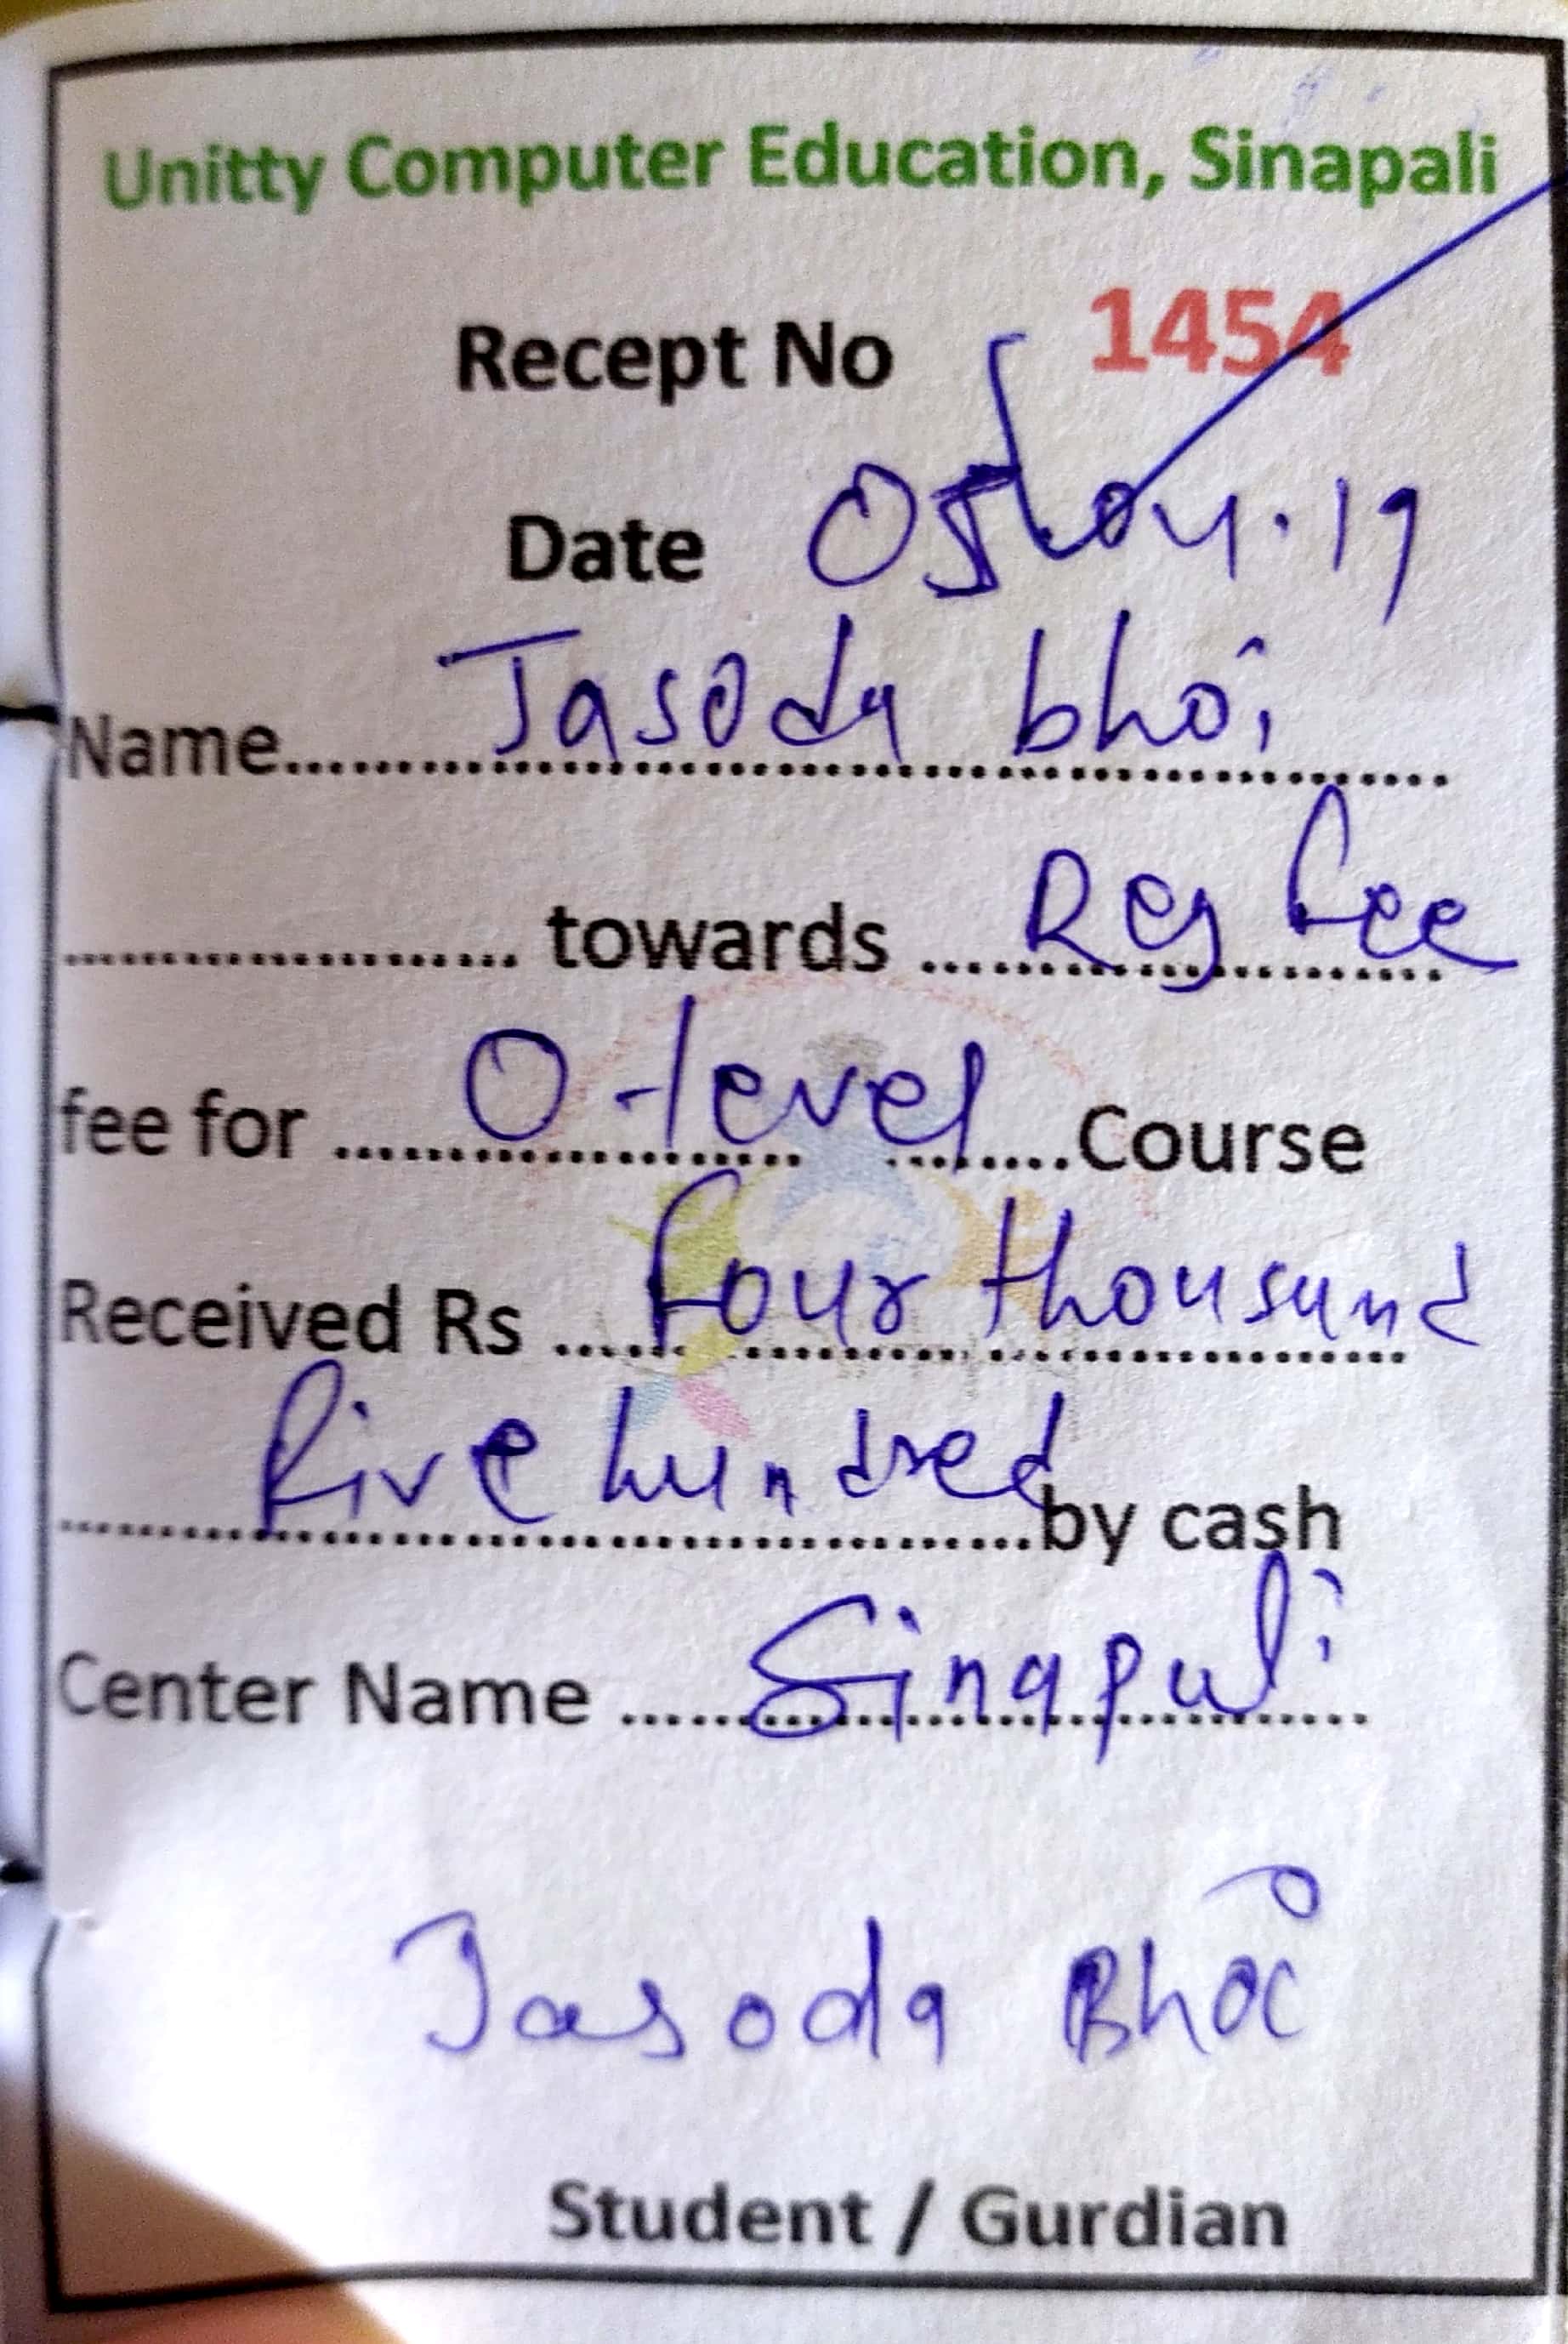 Unitty Computer Education, Sinapali
Recept No 1454
Date 05.04.19
Name.......Jasoda bhoi.......
.......towards.......Reg fee
fee for.......O-level.......Course
Received Rs.......four thousand
five hundred.......by cash
Center Name.......Sinapali.......
Jasoda Bhoi
Student / Gurdian